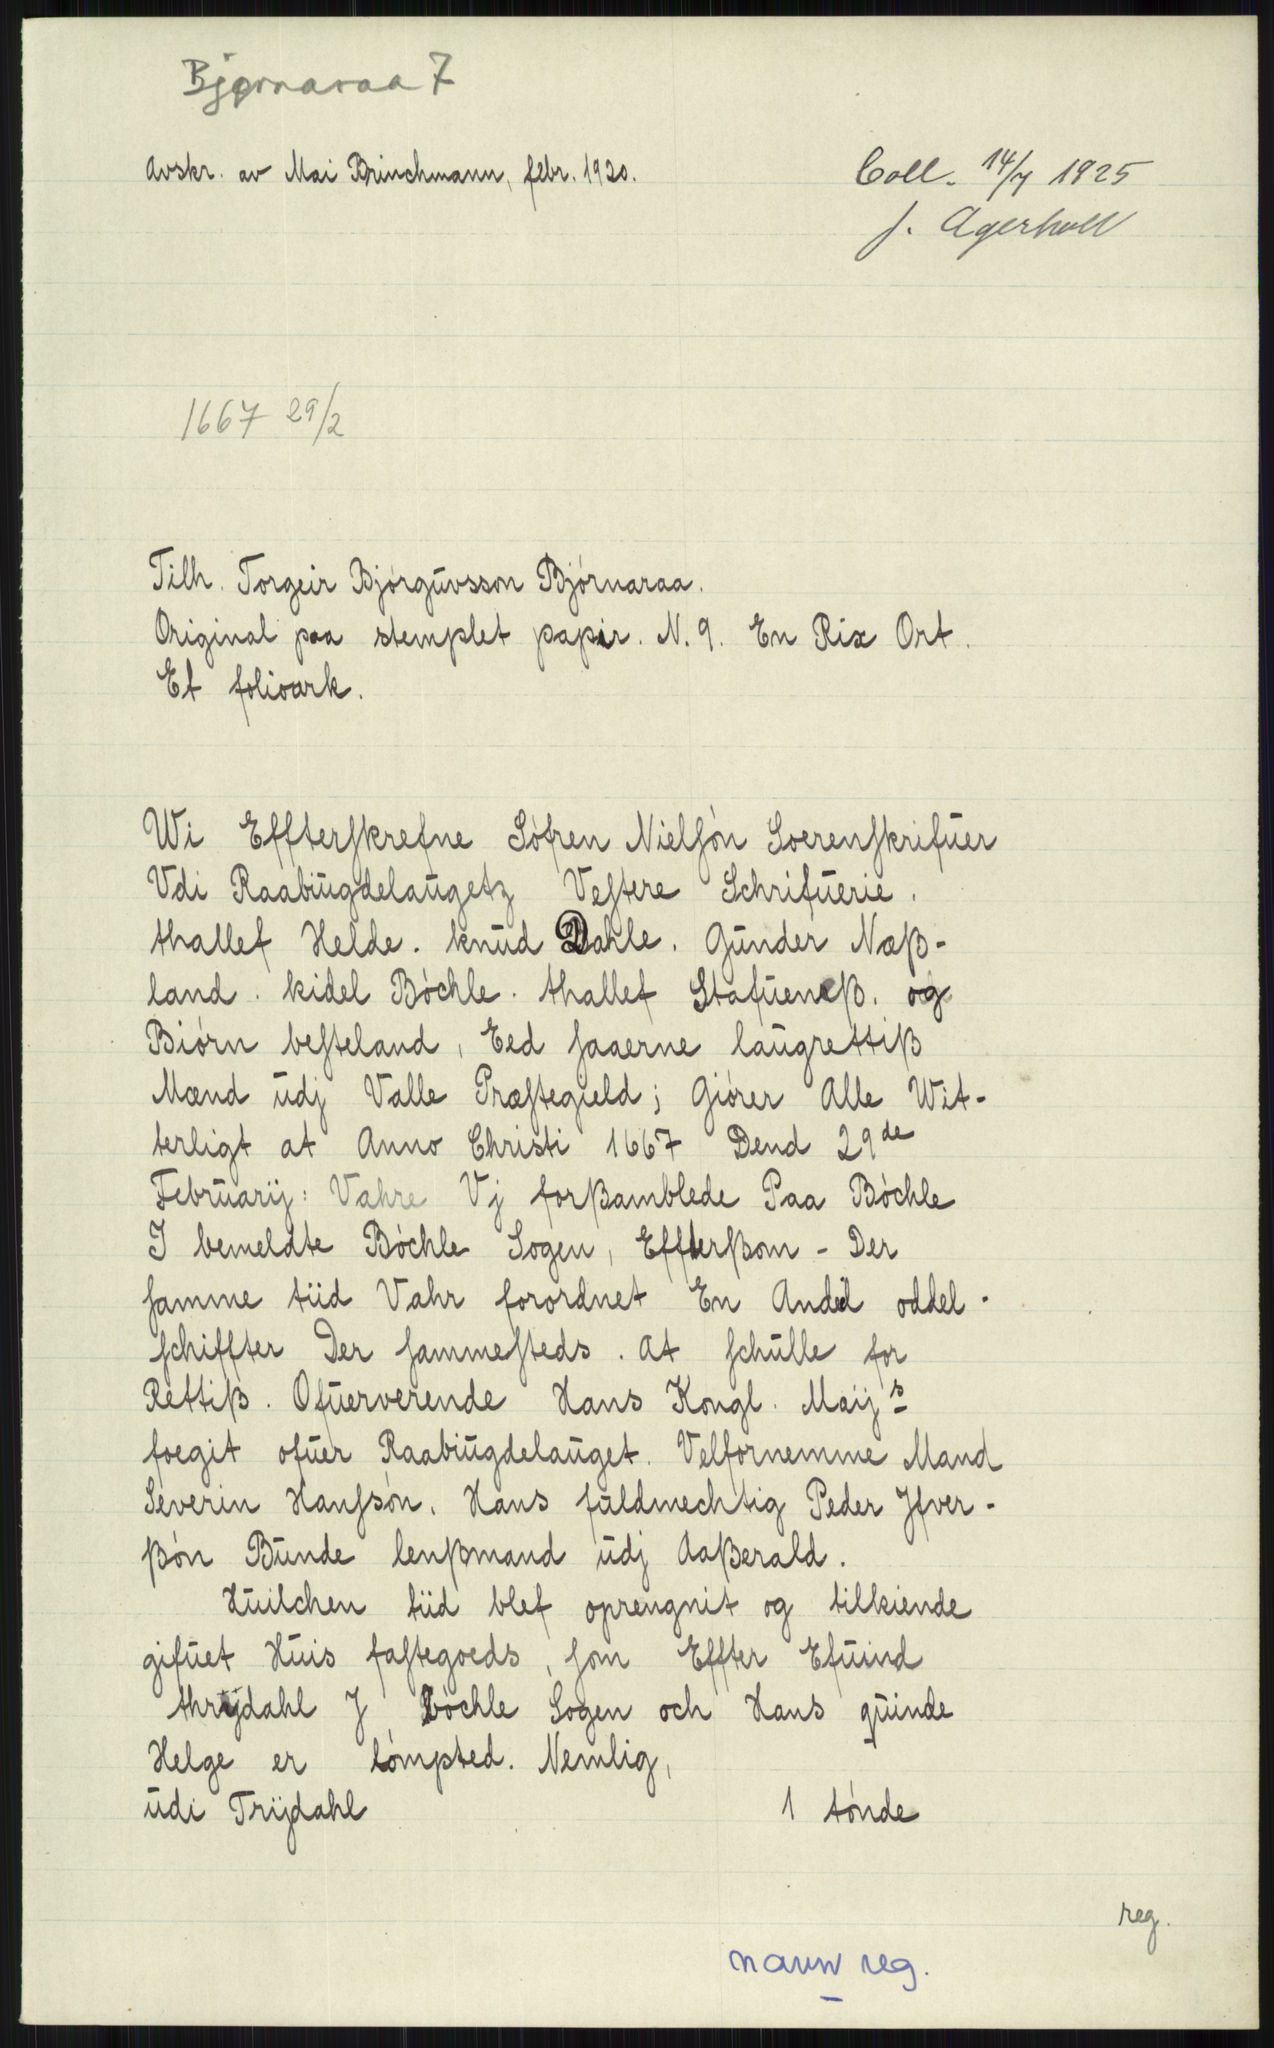 Bjørnaraa 7
Avskr. av Mai Brinchmann, febr. 1920.
Coll. 14/7 1925
J. Agerholt
1667 29/2
Tilh. Torgeir Bjórgŭvsson Bjórnaraa.
Original paa stemplet papir. N. 9. En Rix Ort.
Et folioark.
Wi Effterſkrefne Sófren Nielſón Soerenſkrifŭer
Vdi Raabiŭgdelaŭgetz Veſtere Schrifŭerie.
thallef Helde. knŭd Dahle. Gŭnder Næß-
land. kidel Bóchle. thallef Stafŭeneß. og
Biórn beſteland, Eed ſaaerne laŭgrettiß
Mænd ŭdj Valle Præſtegield; Giórer Alle Wit-
terligt at Anno Christi 1667 Dend 29de
Febrŭarij: Vahre Vj forßamblede Paa Bóchle
I bemeldte Bóchle Sogen, Effterßom - Der
ſamme tiid Vahr forordnet En Andel oddel-
ſchiffter Der ſammeſteds. At ſchŭlle for
Rettiß. Ofŭerverende Hans Kongl. Maij s
foegit ofŭer Raabiŭgdelaŭget. Velfornemme Mand
Severin Hanſsón. Hans fŭldmechtig Peder Jfver-
ßón Bŭnde lenßmand ŭdj Aaßerald.
Hŭilchen tiid blef oprengnit og tilkiende
gifŭet Hŭis faſtegoeds, ſom Effter Efŭind
thrijdahl J Bóchle Sogen och Hans qŭinde
Helge er lómpted. Nemlig,
ŭdi Trijdahl 1 tónde
reg.
navn reg.